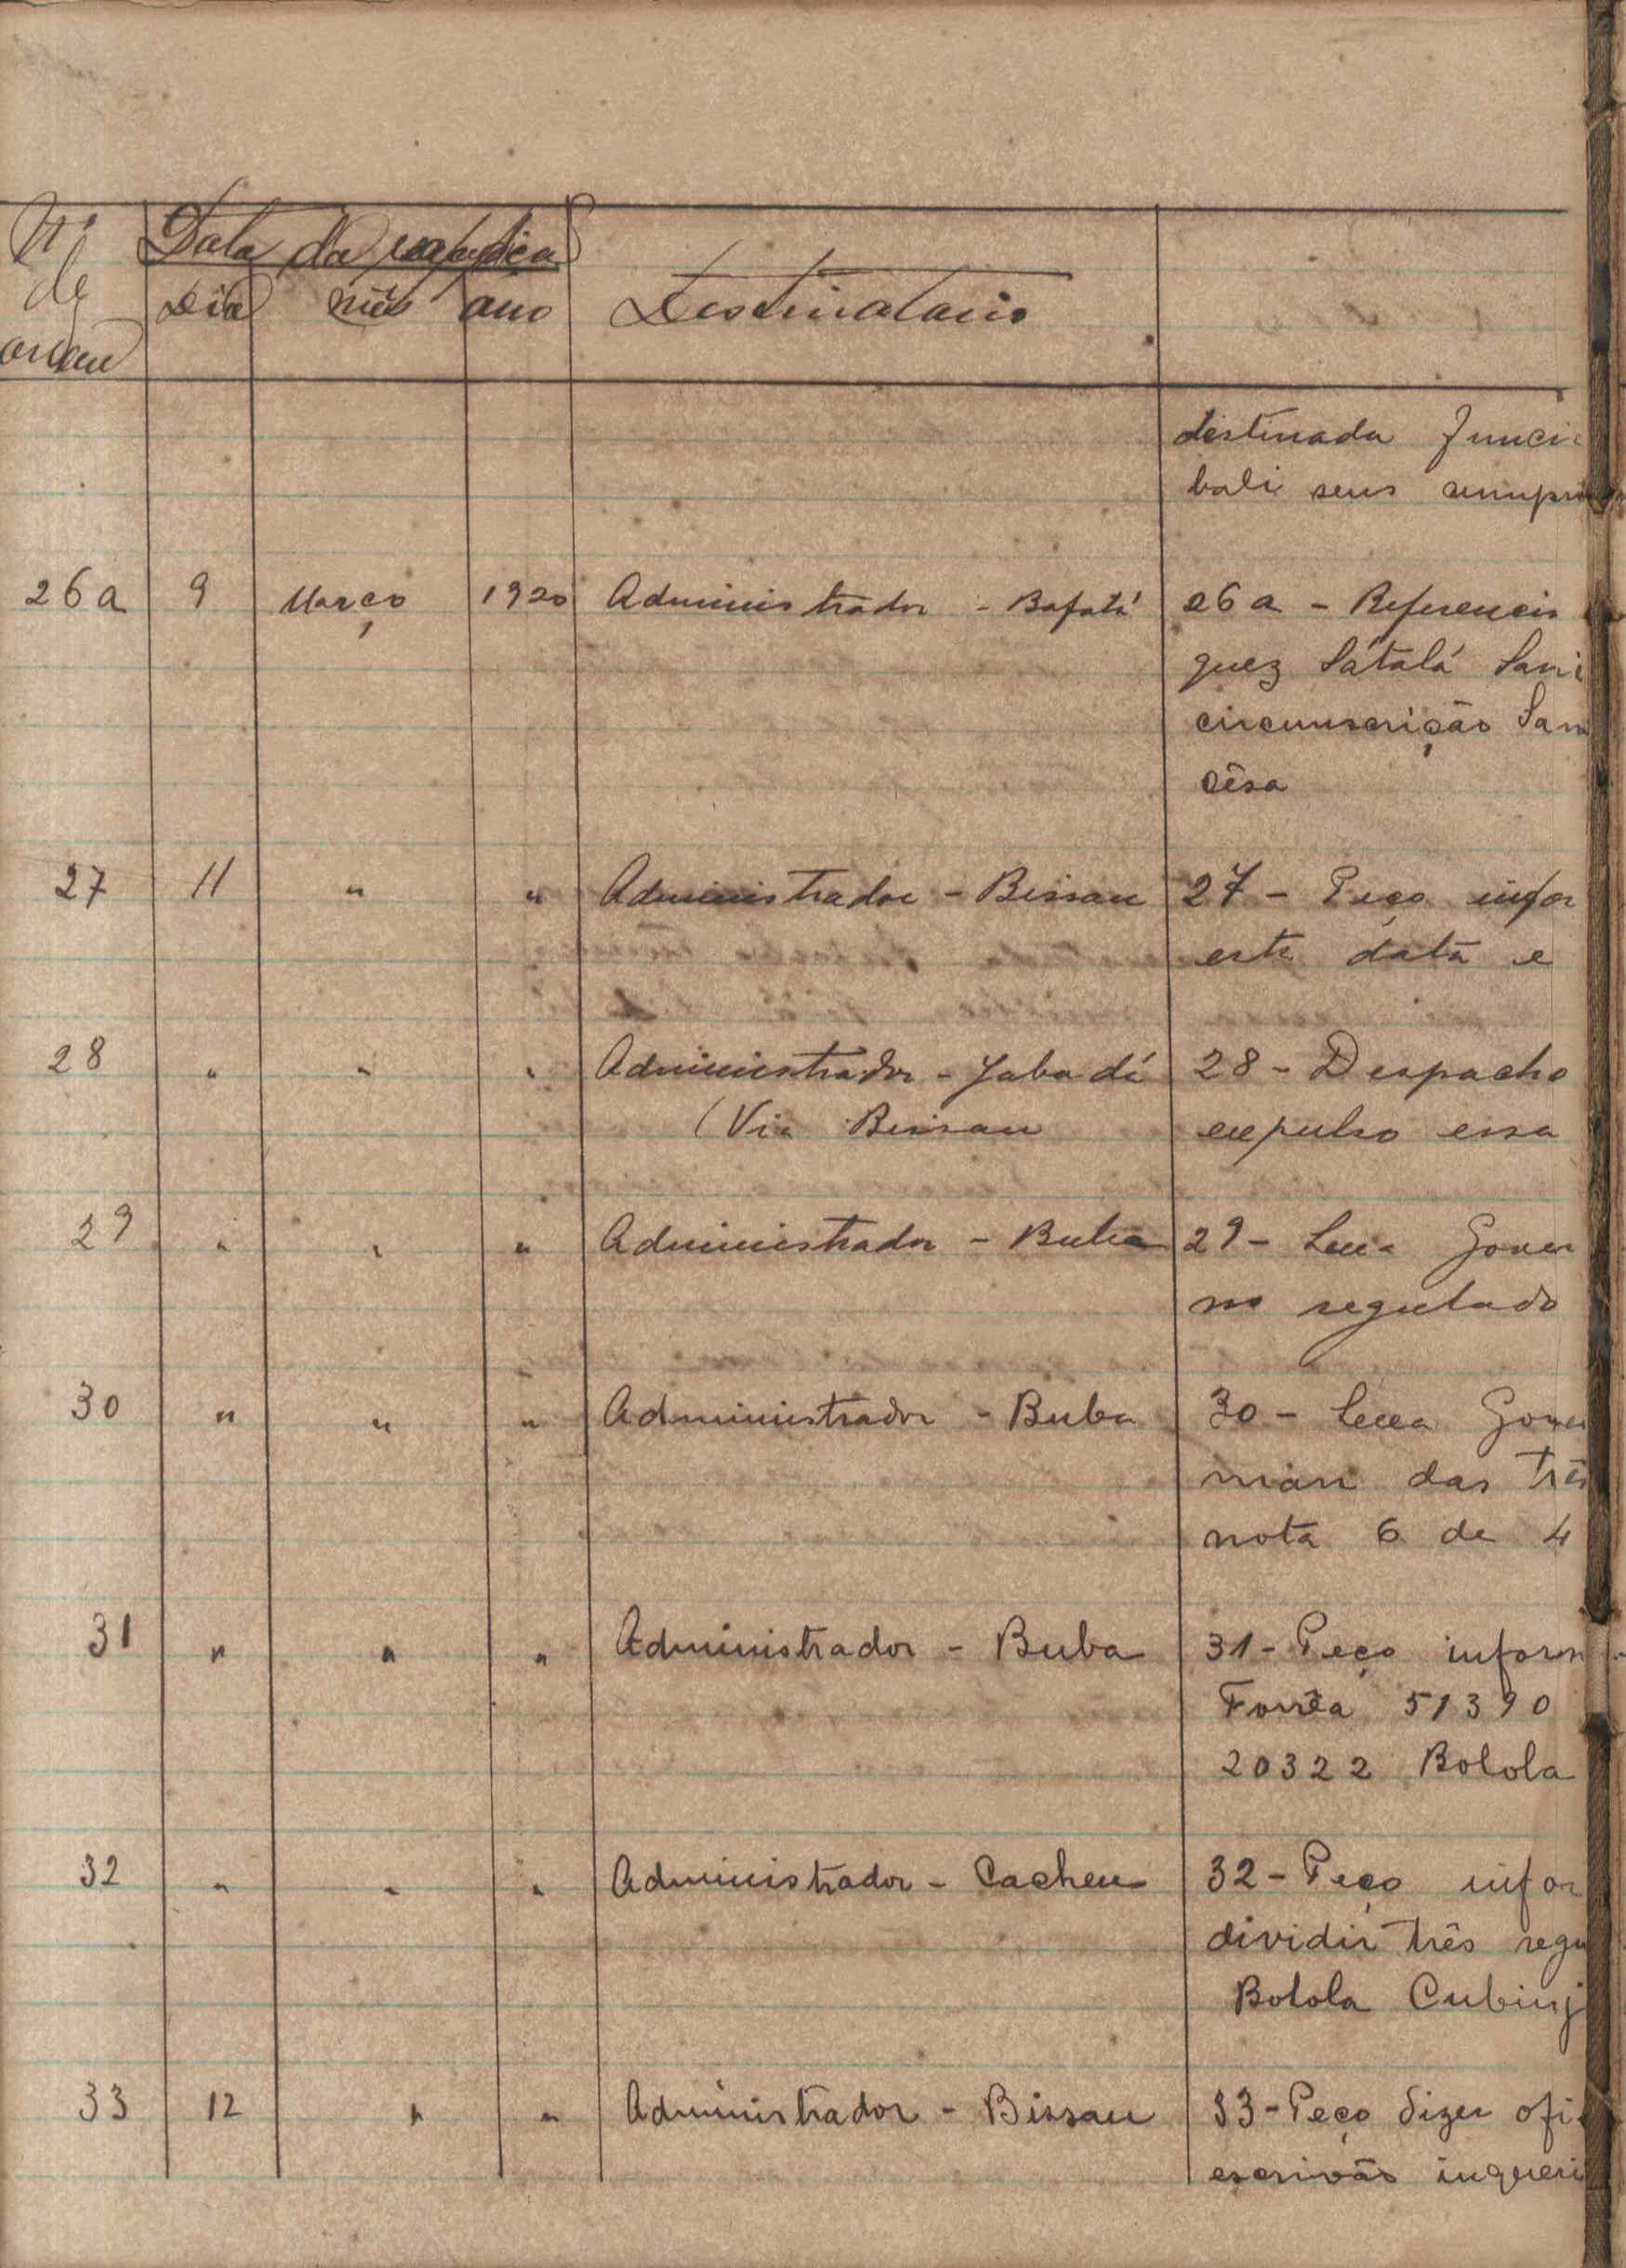 Nº de ordem
Data da
Dia mês ano
Destinatario
destinada funci
bali seus cumpri
26a 9 Março 1920 Administrador - Bafatá 26a - Referencia
guez Sátalá Sani
circumscrição San
cêsa
27 11 " " Administrador - Bissau 27 - Peço infor
este data e
28 " " " Administrador - Jabadá 28 - Despacho
(Via Bissau expulso essa
29 " " " Administrador - Buba 29 - Sexa Gover
no regulado
30 " " " Administrador - Buba 30 - Sexa Gover
das três
nota 6 de 4
31 " " " Administrador - Buba 31 - Peço inform
Forrêa 51390
20322 Bolola
32 " " " Administrador - Cacheu 32 - Peço infor
dividir três regu
Bolola Cubinj
33 12 " " Administrador - Bissau 33 - Peço dizer ofi
escrivão inqueri